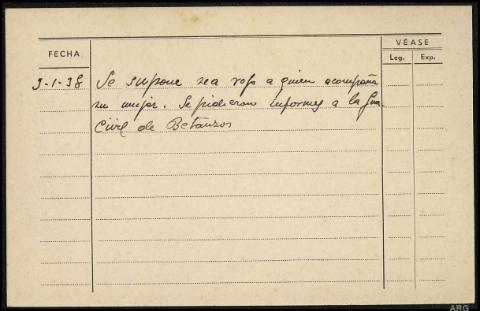 VÉASE
FECHA
Leg. Exp.
3-1-38 Se supone sea rojo a quien acompaña
su mujer. Se pidieron informes a la Gua.
Civil de Betanzos
ARG